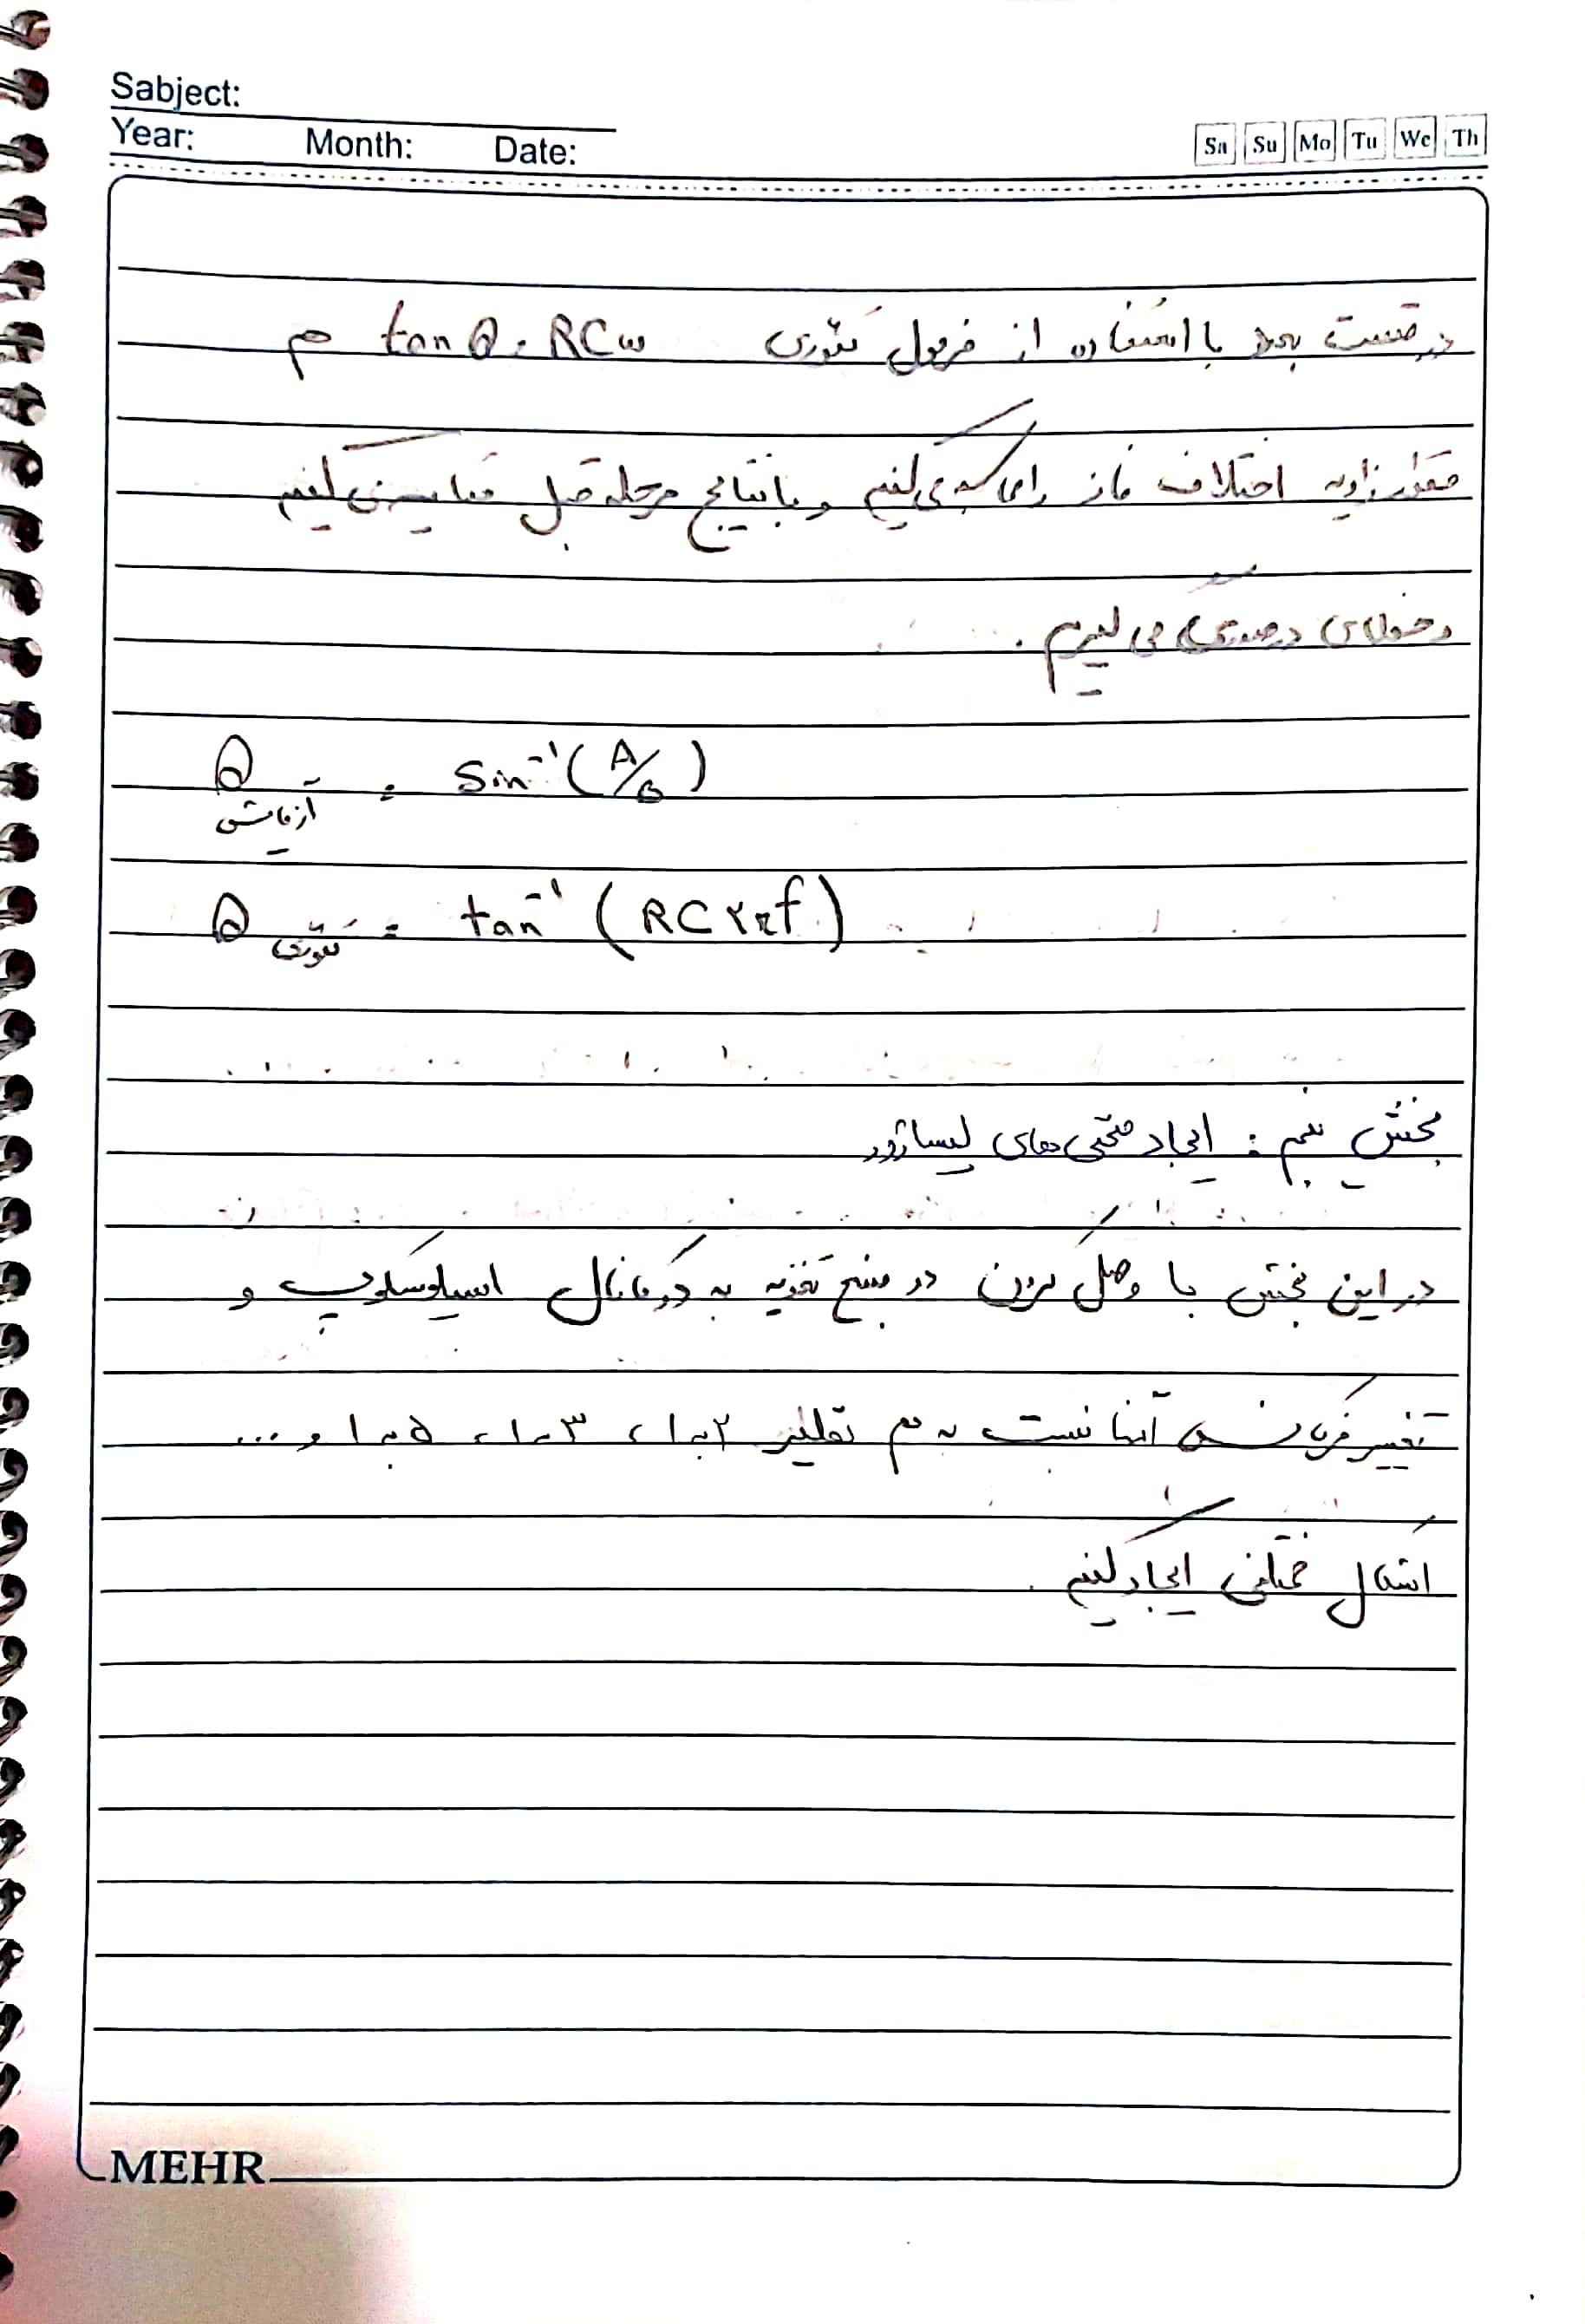 Sabject:
Year: Month: Date:
Sa Su Mo Tu We Th
در قسمت بعد با استفاده از فرمول تئوری tan θ = RCω هم
مقدار زاویه اختلاف فاز را محاسبه می کنیم و با نتایج مرحله قبل مقایسه می کنیم
و خطای درصدی می گیریم .
θ آزمایش = Sin⁻¹ (A/B)
θ تئوری = tan⁻¹ (RC۲πf)
بخش پنجم : ایجاد منحنی های لیساژور
در این بخش با وصل کردن دو منبع تغذیه به دو کانال اسیلوسکوپ و
تغییر فرکانس آنها نسبت به هم نظیر ۲ به ۱ ، ۳ به ۱ ، ۵ به ۱ و ...
اشکال مختلفی ایجاد کنیم .
MEHR